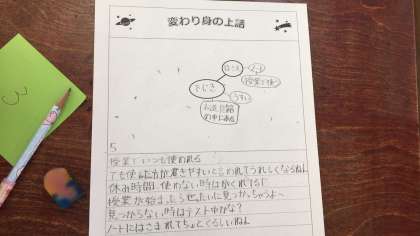 変わり身の上話
はこぶ
授業で使う
下じき
うすい
お道具箱の中にある
5
授業でいつも使われる
でも使った方が書きやすいと言われてうれしくなるね
休み時間、使わない時はかくれてるよ
授業が始まったらぜったいに見つかっちゃうよ〜
見つからない時はテスト中かな?
ノートにはさまれてちょっとくるしいね